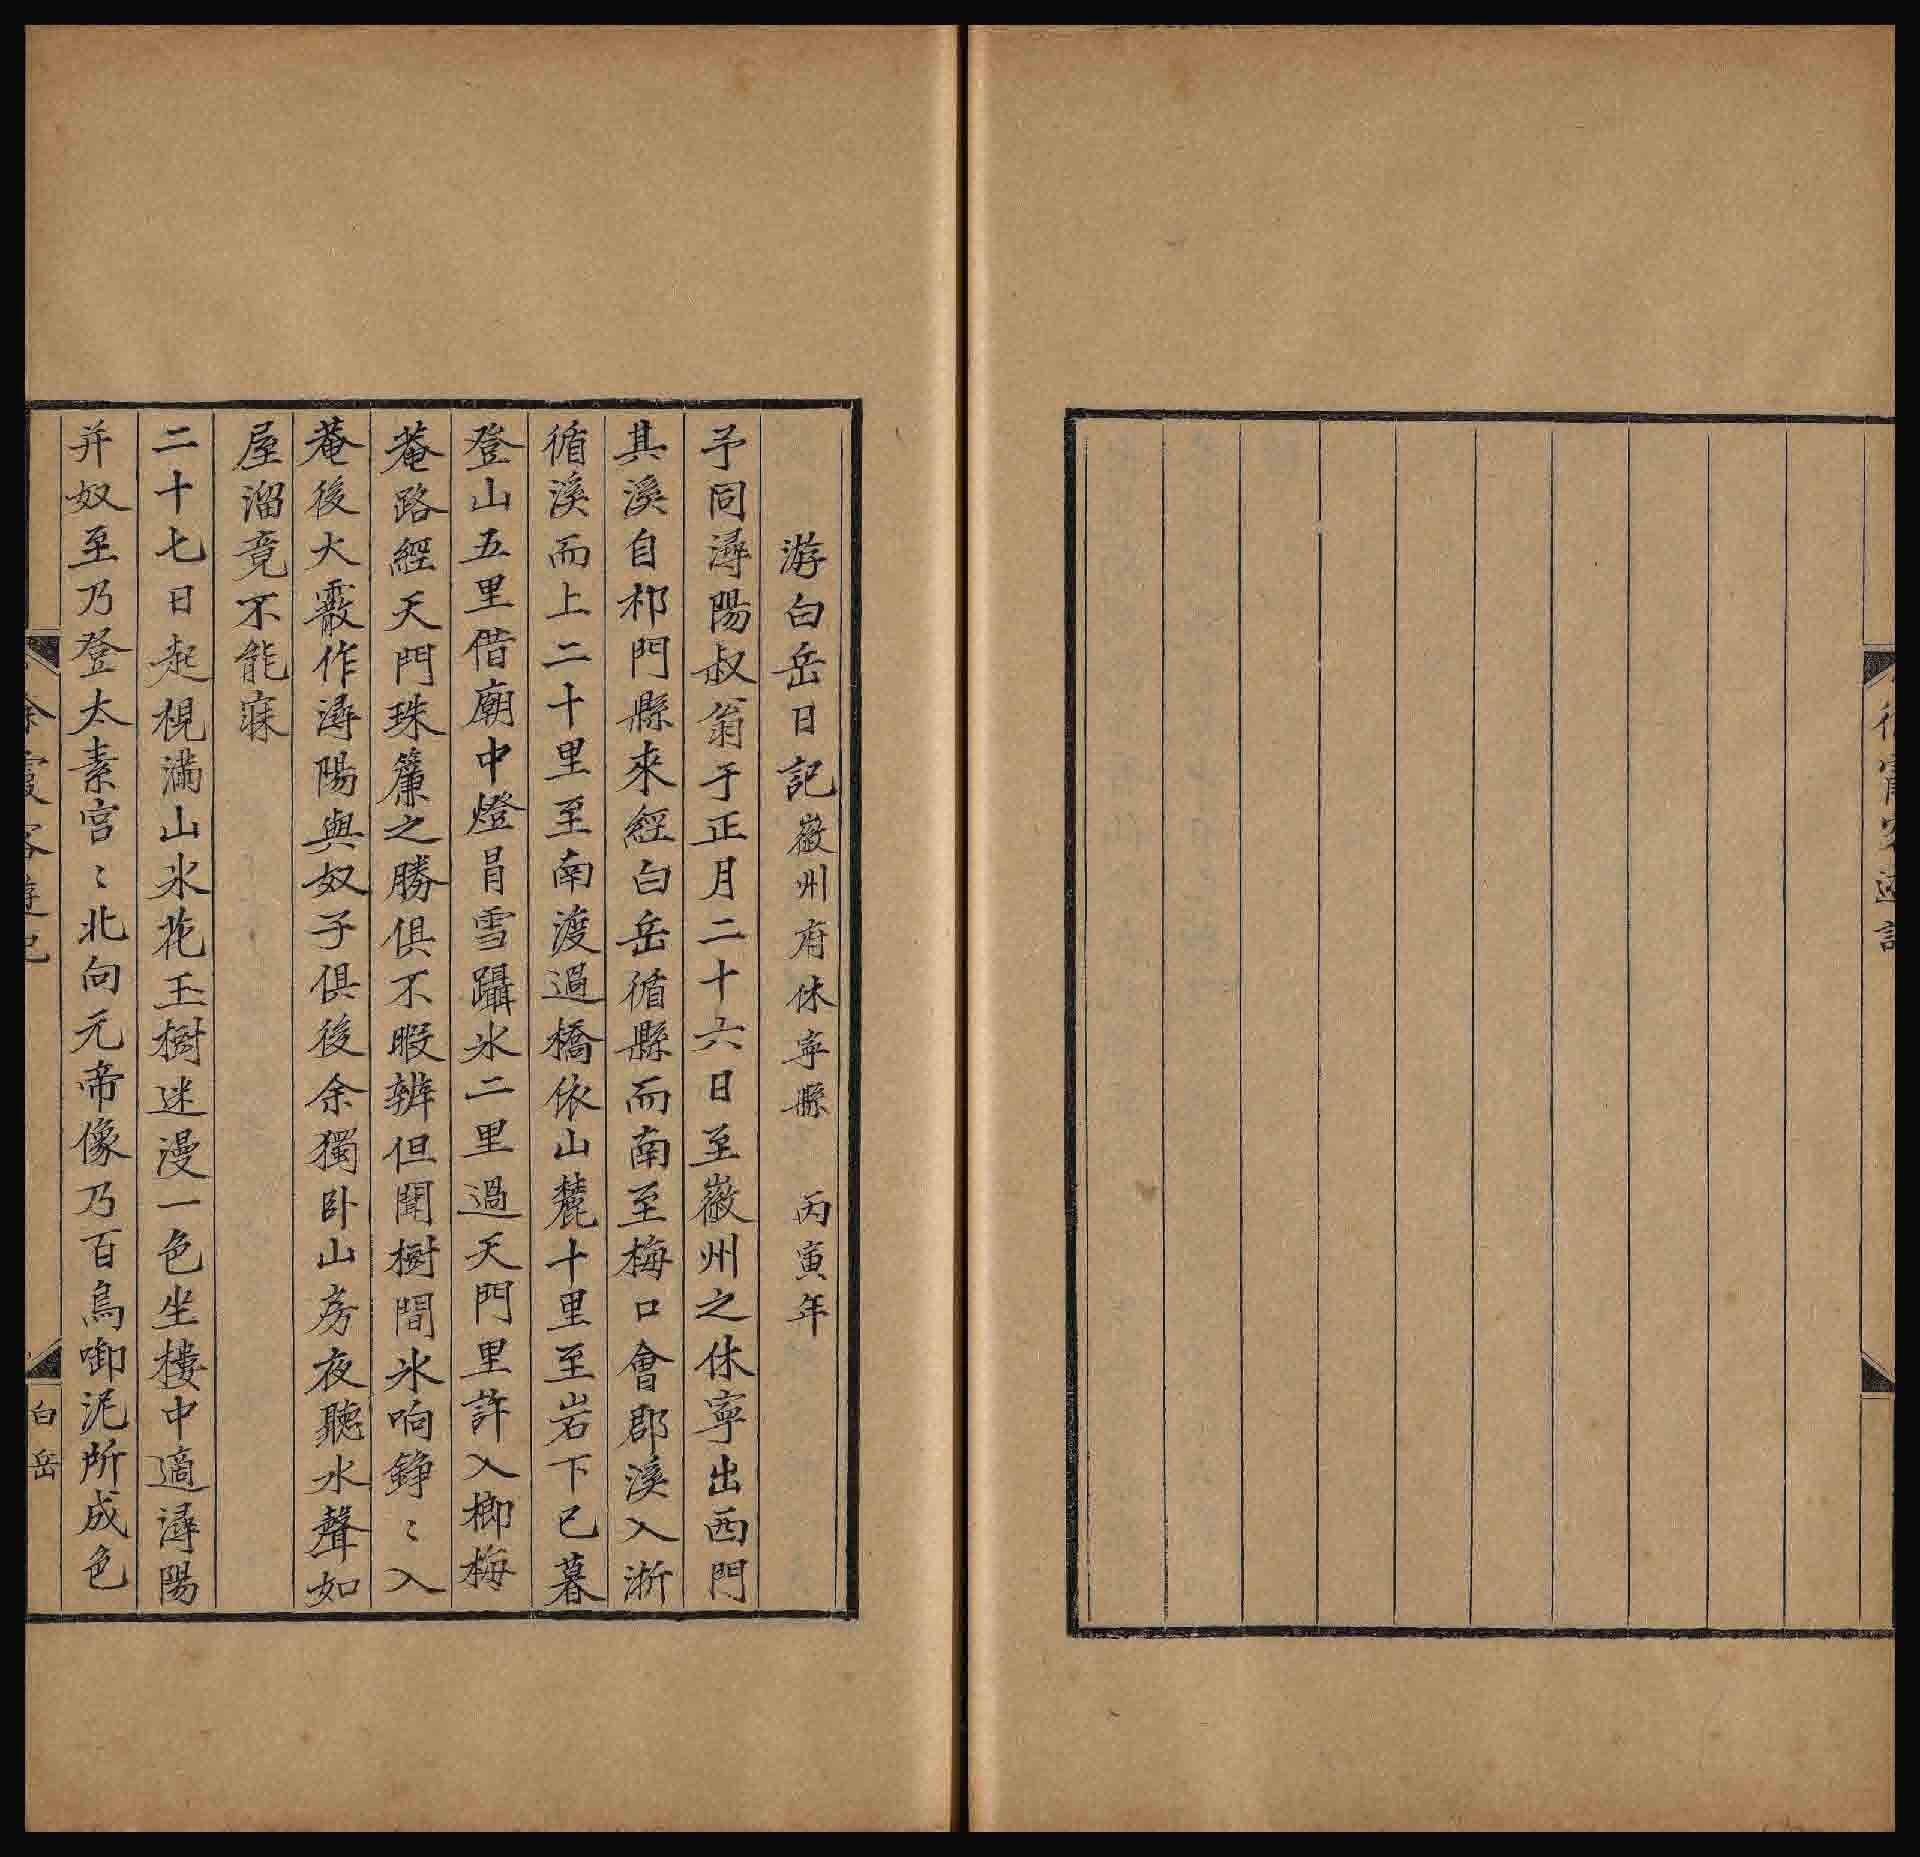 徐霞客遊記
游白岳日記徽州府休寧縣 丙寅年
予同潯陽叔翁于正月二十六日至徽州之休寧出西門
其溪自祁門縣來經白岳循縣而南至梅口會郡溪入浙
循溪而上二十里至南渡過橋依山麓十里至岩下已暮
登山五里借廟中燈冐雪躡氷二里過天門里許入榔梅
菴路經天門珠簾之勝俱不暇辨但聞樹間氷响錚〻入
菴後大霰作潯陽與奴子俱後余獨卧山房夜聽水聲如
屋溜竟不能寐
二十七日起視滿山氷花玉樹迷漫一色坐樓中適潯陽
并奴至乃登太素宮〻北向元帝像乃百鳥啣泥所成色
徐霞客遊記
白岳